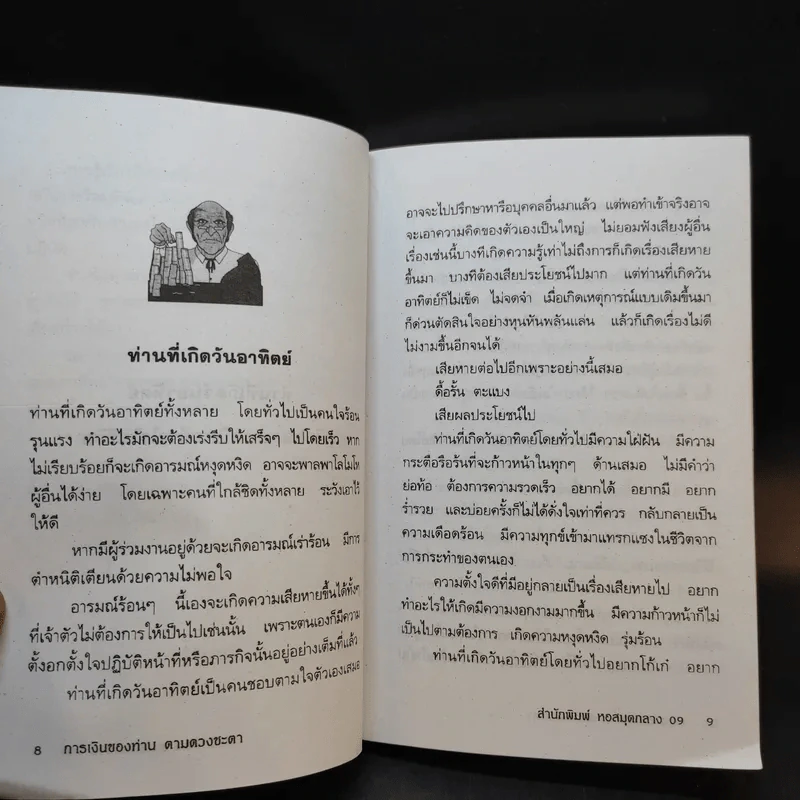 ท่านที่เกิดวันอาทิตย์
ท่านที่เกิดวันอาทิตย์ทั้งหลาย โดยทั่วไปเป็นคนใจร้อน
รุนแรง ทำอะไรมักจะต้องเร่งรีบให้เสร็จๆ ไปโดยเร็ว หาก
ไม่เรียบร้อยก็จะเกิดอารมณ์หงุดหงิด อาจจะพาลพาโลโมโห
ผู้อื่นได้ง่าย โดยเฉพาะคนที่ใกล้ชิดทั้งหลาย ระวังเอาไว้
ให้ดี
หากมีผู้ร่วมงานอยู่ด้วยจะเกิดอารมณ์เร่าร้อน มีการ
ตำหนิติเตียนด้วยความไม่พอใจ
อารมณ์ร้อนๆ นี้เองจะเกิดความเสียหายขึ้นได้ทั้งๆ
ที่เจ้าตัวไม่ต้องการให้เป็นไปเช่นนั้น เพราะตนเองก็มีความ
ตั้งอกตั้งใจปฏิบัติหน้าที่หรือภารกิจนั้นอยู่อย่างเต็มที่แล้ว
ท่านที่เกิดวันอาทิตย์เป็นคนชอบตามใจตัวเองเสมอ
8 การเงินของท่าน ตามดวงชะตา
อาจจะไปปรึกษาหารือบุคคลอื่นมาแล้ว แต่พอทำเข้าจริงอาจ
จะเอาความคิดของตัวเองเป็นใหญ่ ไม่ยอมฟังเสียงผู้อื่น
เรื่องเช่นนี้บางทีเกิดความรู้เท่าไม่ถึงการก็เกิดเรื่องเสียหาย
ขึ้นมา บางทีต้องเสียประโยชน์ไปมาก แต่ท่านที่เกิดวัน
อาทิตย์ก็ไม่เข็ด ไม่จดจำ เมื่อเกิดเหตุการณ์แบบเดิมขึ้นมา
ก็ด่วนตัดสินใจอย่างหุนหันพลันแล่น แล้วก็เกิดเรื่องไม่ดี
ไม่งามขึ้นอีกจนได้
เสียหายต่อไปอีกเพราะอย่างนี้เสมอ
ดื้อรั้น ตะแบง
เสียผลประโยชน์ไป
ท่านที่เกิดวันอาทิตย์โดยทั่วไปมีความใฝ่ฝัน มีความ
กระตือรือร้นที่จะก้าวหน้าในทุกๆ ด้านเสมอ ไม่มีคำว่า
ย่อท้อ ต้องการความรวดเร็ว อยากได้ อยากมี อยาก
ร่ำรวย และบ่อยครั้งก็ไม่ได้ดั่งใจเท่าที่ควร กลับกลายเป็น
ความเดือดร้อน มีความทุกข์เข้ามาแทรกแซงในชีวิตจาก
การกระทำของตนเอง
ความตั้งใจดีที่มีอยู่กลายเป็นเรื่องเสียหายไป อยาก
ทำอะไรให้เกิดมีความงอกงามมากขึ้น มีความก้าวหน้าก็ไม่
เป็นไปตามต้องการ เกิดความหงุดหงิด รุ่มร้อน
ท่านที่เกิดวันอาทิตย์โดยทั่วไปอยากโก้เก๋ อยาก
สำนักพิมพ์ หอสมุดกลาง 09 9